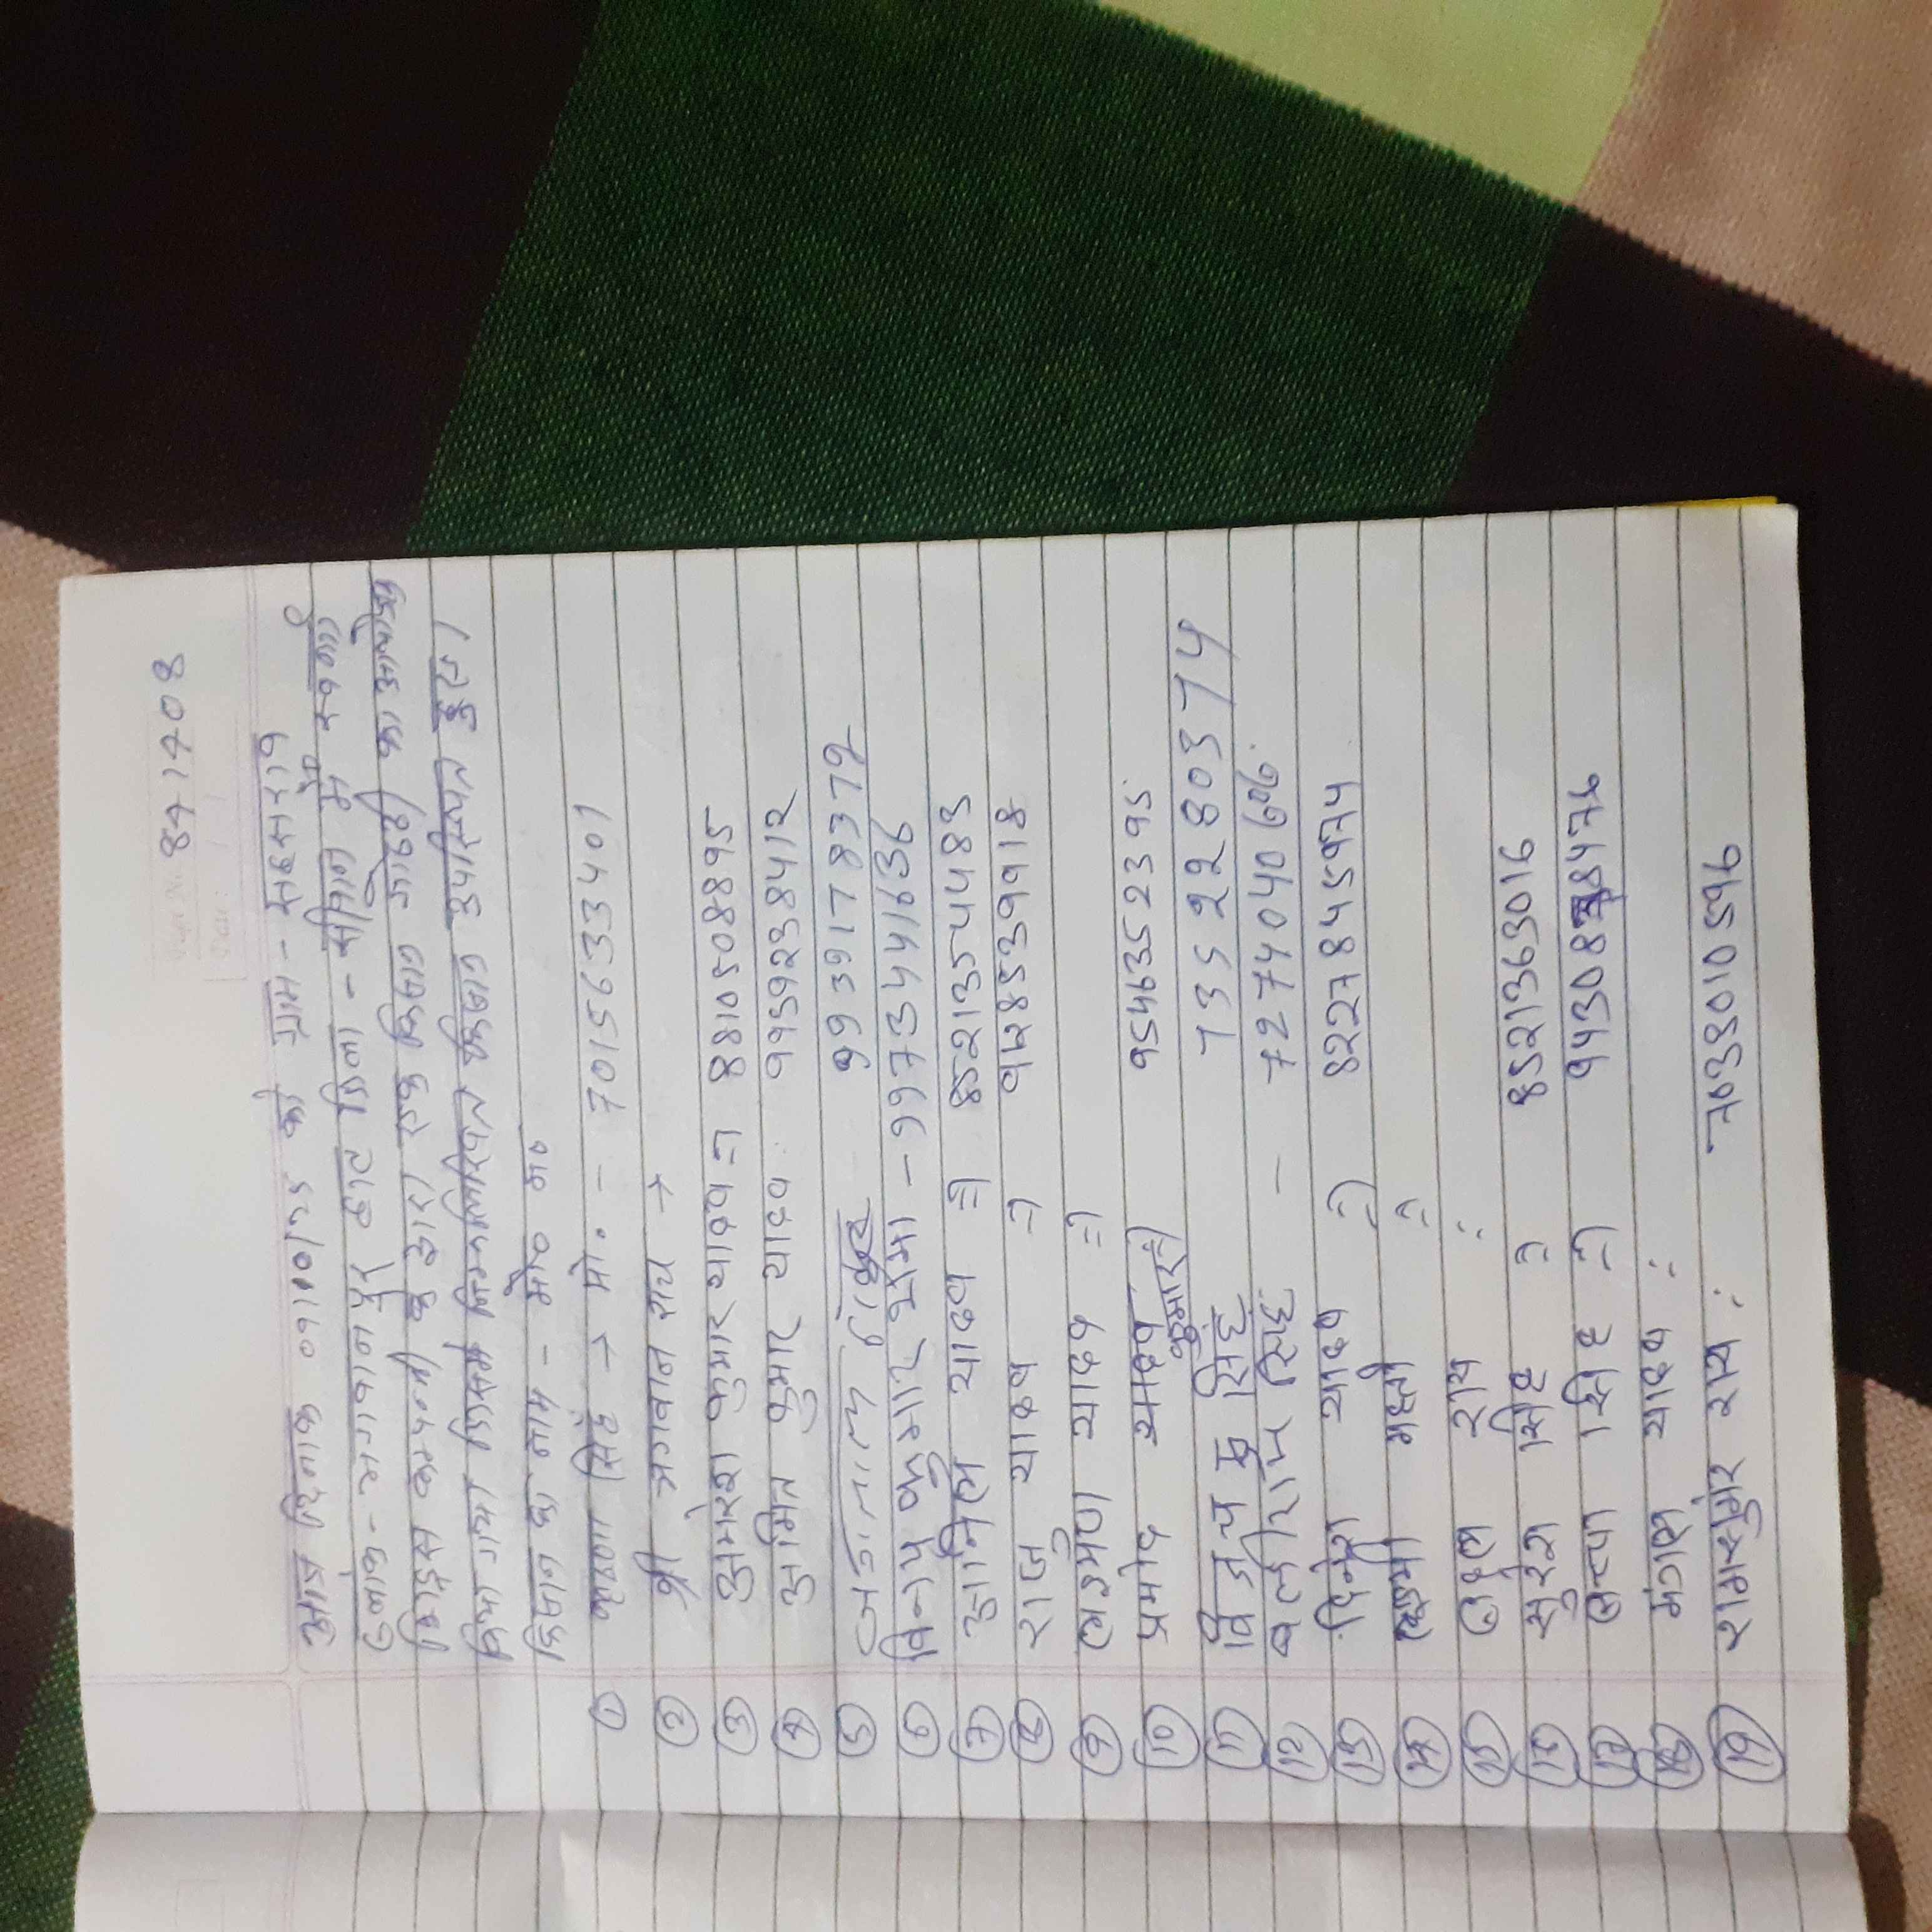 871408
आज दिनांक 09/10/25 को ग्राम - सहसराव
ब्लाक - भगवानपुर हाट जिला - सीवान में स्वर्गी
सिड्स कम्पनी के द्वारा एक किसान गोष्ठी का आयोजन
किया गया जिसमें निम्नलिखित किसान उपस्थित हुए।
किसान का नाम - मो० न०
① कृष्णा सिंह → मो. - 7015633401
② श्री भगवान राय →
③ अमरेश कुमार यादव = 8810508895
④ अमित कुमार यादव 9939238412
⑤ 9939178372
⑥ विनय कुमार शर्मा - 9973441636
⑦ अनिल यादव = 8521354483
⑧ राजु यादव = 9628539918
⑨ लक्ष्मण यादव =
⑩ प्रमोद यादव 9546352395
⑪ विजय कु सिंह कुमार 7352280374
⑫ बलीराम सिंह - 72740406
⑬ दिनेश यादव = 8227845974
⑭ लक्ष्मी महतो =
⑮ राय :
⑯ सुरेश सिंह = 8521363016
⑰ सिंह = 94308
⑱ मंगल यादव :
⑲ रामेश्वर राय : 7033010596